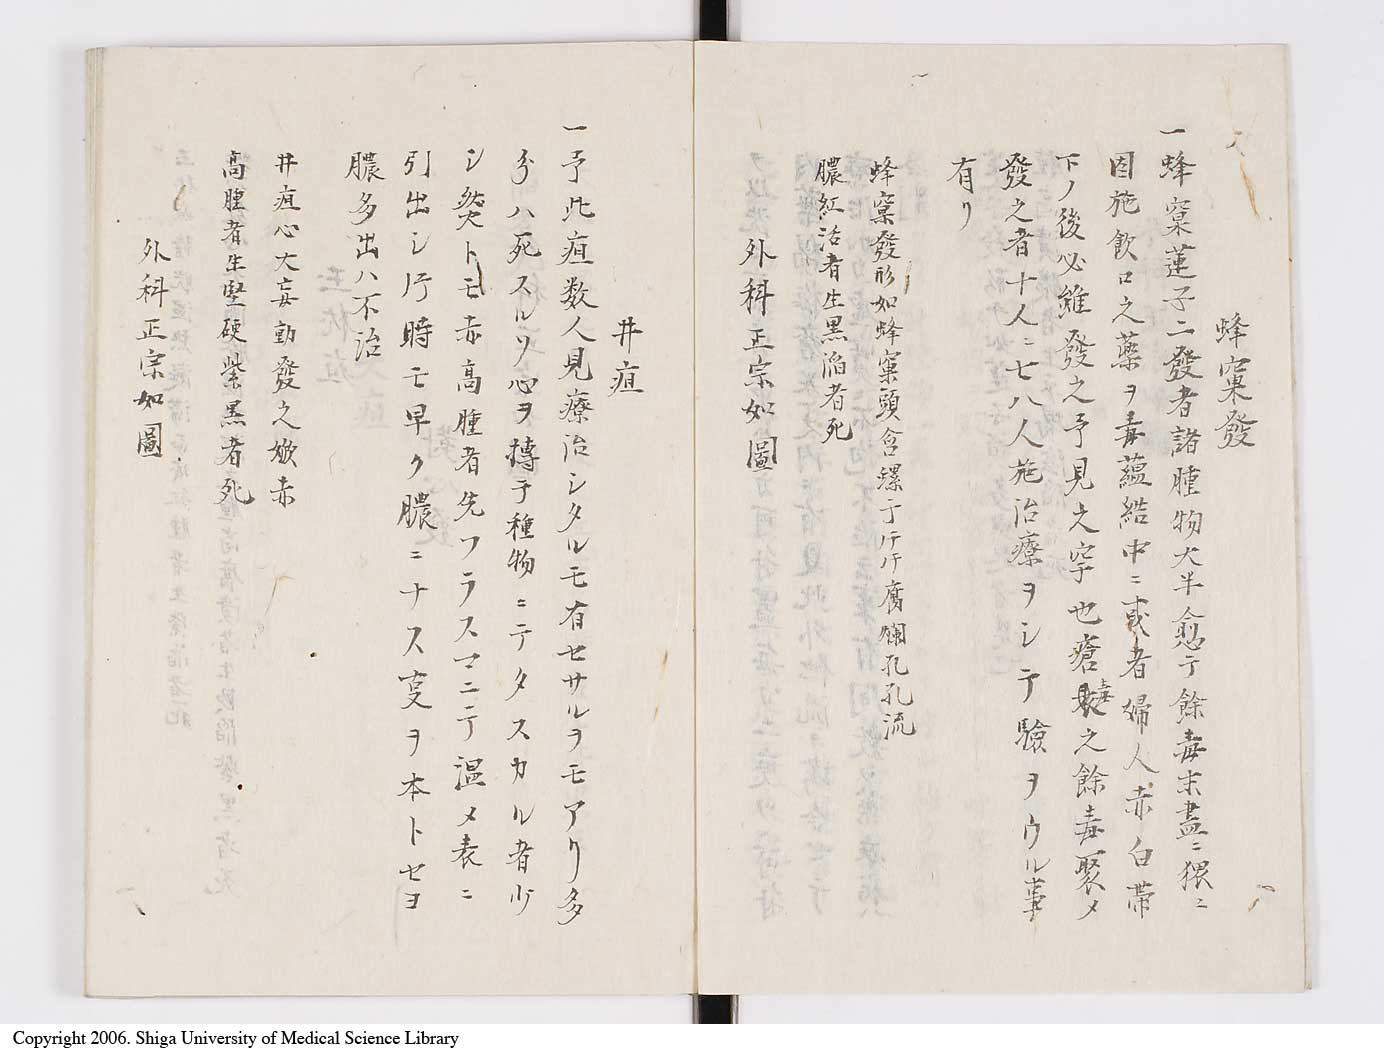 蜂窠發
一蜂窠蓮子二發者諸腫物大半愈テ餘毒未盡ニ猥ニ
固施飲口之藥ヲ毒蘊結中ニ或者婦人赤白帶
下ノ後必維發之予見之穻也瘡毒之餘毒聚メ
發之者十人ニ七八人施治療ヲシテ驗ヲウル事
有リ
蜂窠發形如蜂窠頭含螺子斤斤腐爛孔孔流
膿紅活者生黒陷者死
外科正宗如圖
井疽
一予此疽数人見療治シタルモ有セサルヲモアリ多
分ハ死スルリ心ヲ摶テ種物ニテタスカル者少
シ然トモ赤高腫者先フラスマニテ温メ表ニ
引出シ片時モ早ク膿ニナス㕝ヲ本トセヨ
膿多出ハ不治
井疽心大妄動發之嫩赤
高腫者生堅硬紫黒者死
外科正宗如圖
Copyright 2006. Shiga University of Medical Science Library